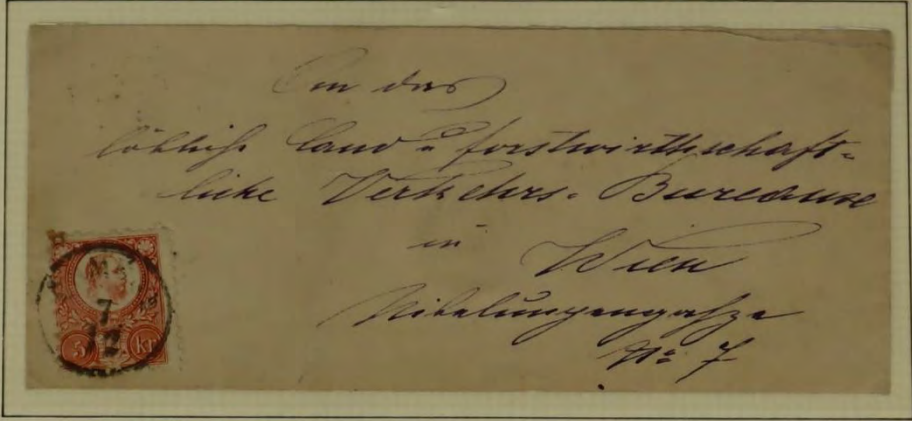 An das
löbliche Land u forstwirthschaft=
liche Verkehrs=Bureause
in
Wien
Nibelungengasse
No 7
7
12
5 kr